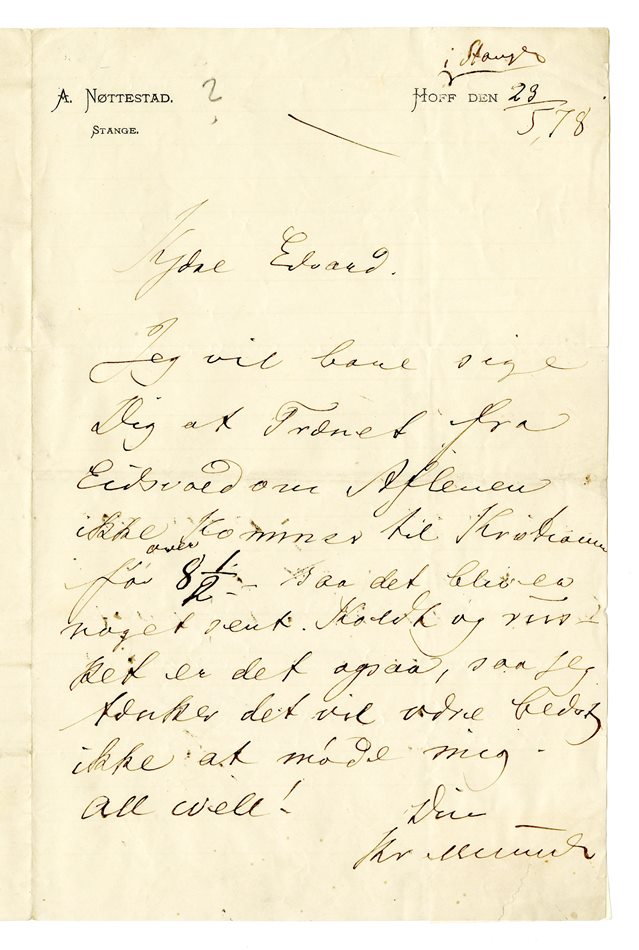 i Stange
A. NØTTESTAD. ? HOFF DEN 23/5, 78
STANGE.
Kjære Edvard.
Jeg vil bare sige
Dig at Trænet fra
Eidsvold om Aftenen
ikke kommer til Kristiania
før over 8 1/2 - saa det bliver
noget sent. Koldt og rus-
ket er det ogsaa, saa jeg
tænker det vil være bedst
ikke at møde mig.
All well!
Din
Kr Munch